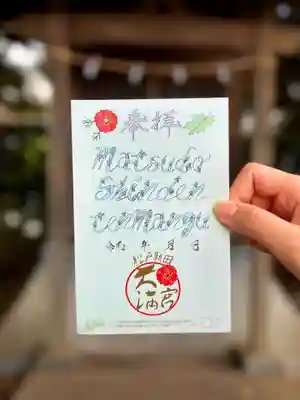 参拝
Matsudo
Shinden
tenmangu
令和 年 月 日
松戸新田
天満宮